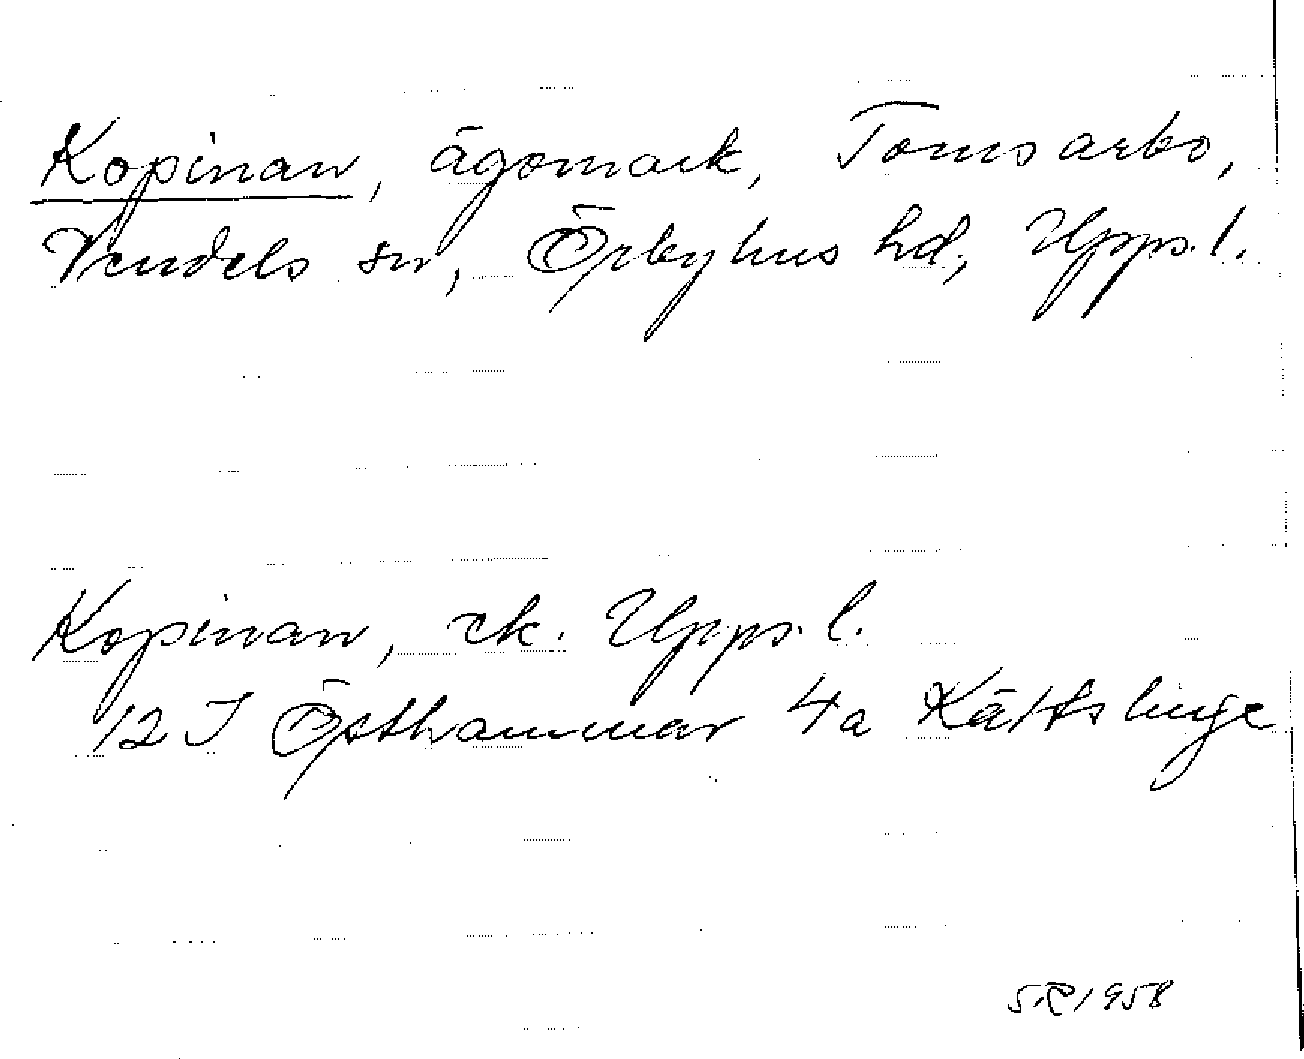 Kopinan, ägomark, Tomsarbo,
Vendels sn, Örbyhus hd, Uppl.
Kopinan, ek. Uppl.
12 I Östhammar 4a Kättslinge
SR 1958